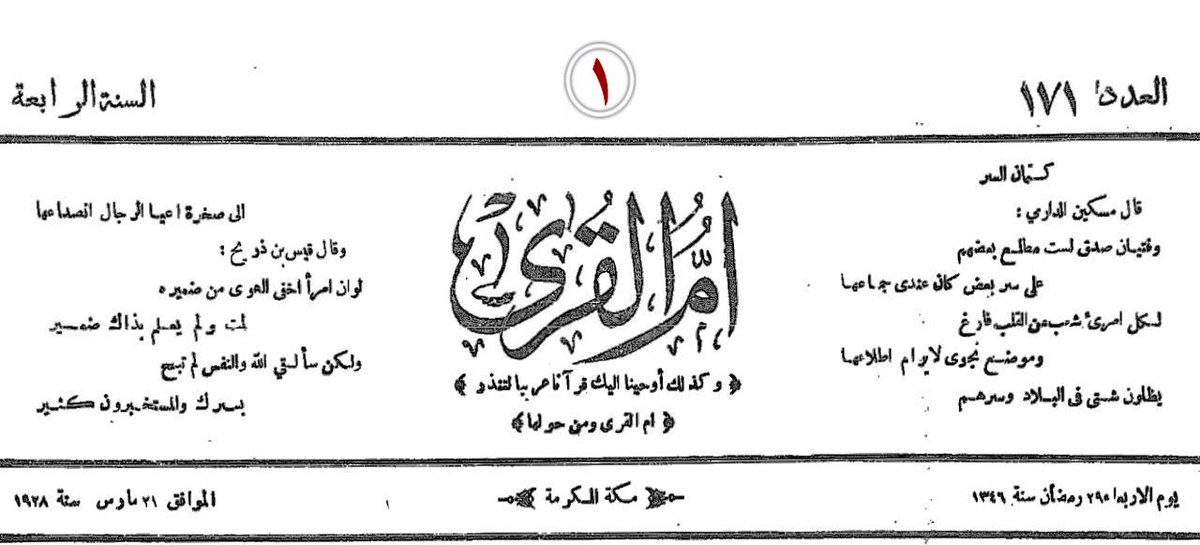 العدد ١٧١
١
السنة الرابعة
كتمان السر
قال مسكين الدارمي :
وفتيان صدق لست مطلع بعضهم
على سر بعض كان عندي جماعها
لكل امرئ شعب من القلب فارغ
وموضع نجوى لا يرام اطلاعها
يظلون شتى في البلاد وسرهم
أم القرى
﴿ وكذلك أوحينا اليك قرآنا عربيا لتنذر ﴾
﴿ ام القرى ومن حولها ﴾
الى صخرة اعيا الرجال انصداعها
وقال قيس بن ذريح :
لو ان امرأ اخفى الهوى من ضميره
لمت ولم يعلم بذاك ضمير
ولكن سألقي الله والنفس لم تبح
بسرك والمستخبرون كثير
يوم الاربعاء ٢٩ رمضان سنة ١٣٤٦
مكة المكرمة
الموافق ٢١ مارس سنة ١٩٢٨